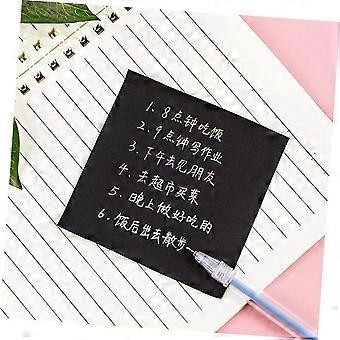 1. 8点钟吃饭
2. 9点钟写作业
3. 下午去见朋友
4. 去超市买菜
5. 晚上做好吃的
6. 饭后出去散步